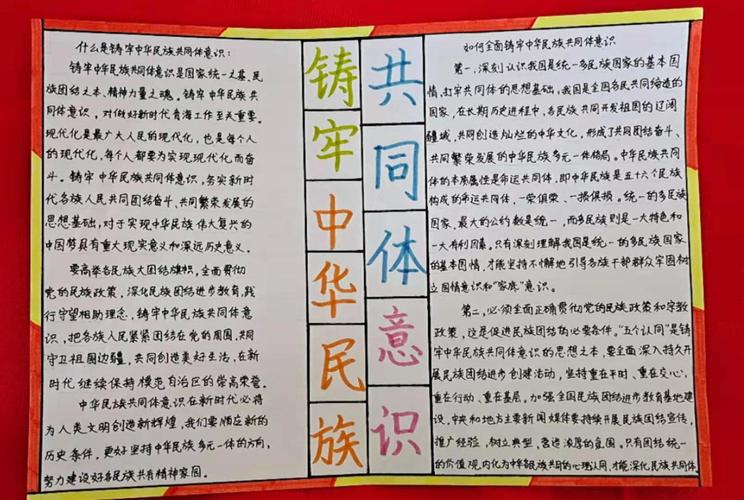 什么是铸牢中华民族共同体意识：
铸牢中华民族共同体意识是国家统一之基、民
族团结之本、精神力量之魂。铸牢中华民族共
同体意识，对做好新时代青海工作至关重要。
现代化是最广大人民的现代化，也是每个人
的现代化，每个人都要为实现现代化而奋
斗。铸牢中华民族共同体意识，务实新时
代各族人民共同团结奋斗、共同繁荣发展的
思想基础，对于实现中华民族伟大复兴的
中国梦具有重大现实意义和深远历史意义。
要高举各民族大团结旗帜，全面贯彻
党的民族政策，深化民族团结进步教育，践
行守望相助理念，铸牢中华民族共同体意
识，把各族人民紧紧团结在党的周围，共同
守卫祖国边疆，共同创造美好生活，在新
时代继续保持模范自治区的崇高荣誉。
中华民族共同体意识在新时代必将
为人类文明创造新辉煌，我们要顺应新的
历史条件，更好坚持中华民族多元一体的方向，
努力建设好各民族共有精神家园。
铸牢中华民族
共同体意识
如何全面铸牢中华民族共同体意识
第一，深刻认识我国是统一多民族国家的基本国
情，打牢共同体的思想基础，我国是全国各民共同缔造的
国家，在长期历史进程中，各民族共同开发祖国的辽阔
疆域，共同创造灿烂的中华文化，形成了共同团结奋斗、
共同繁荣发展的中华民族多元一体格局。中华民族共同
体的本质属性是命运共同体，即中华民族是五十六个民族
构成的命运共同体，一荣俱荣、一损俱损。统一的多民族
国家，最大的公约数是统一，而多民族则是一大特色和
一大有利因素。只有深刻理解我国是统一的多民族国家
的基本国情，才能坚持不懈地引导各族干部群众牢固树
立国情意识和“家族”意识。
第二，必须全面正确贯彻党的民族政策和宗教
政策，这是促进民族团结的必要条件。“五个认同”是铸
牢中华民族共同体意识的思想之本，要全面深入持久开
展民族团结进步创建活动，坚持重在平时、重在交心、
重在行动、重在基层。加强全国民族团结进步教育基地建
设，中央和地方主要新闻媒体要持续开展民族团结宣传，
推广经验，树立典型，营造浓厚的氛围。只有团结统一
的价值观，内化为中华各民族共同的心理认同，才能深化民族共同体